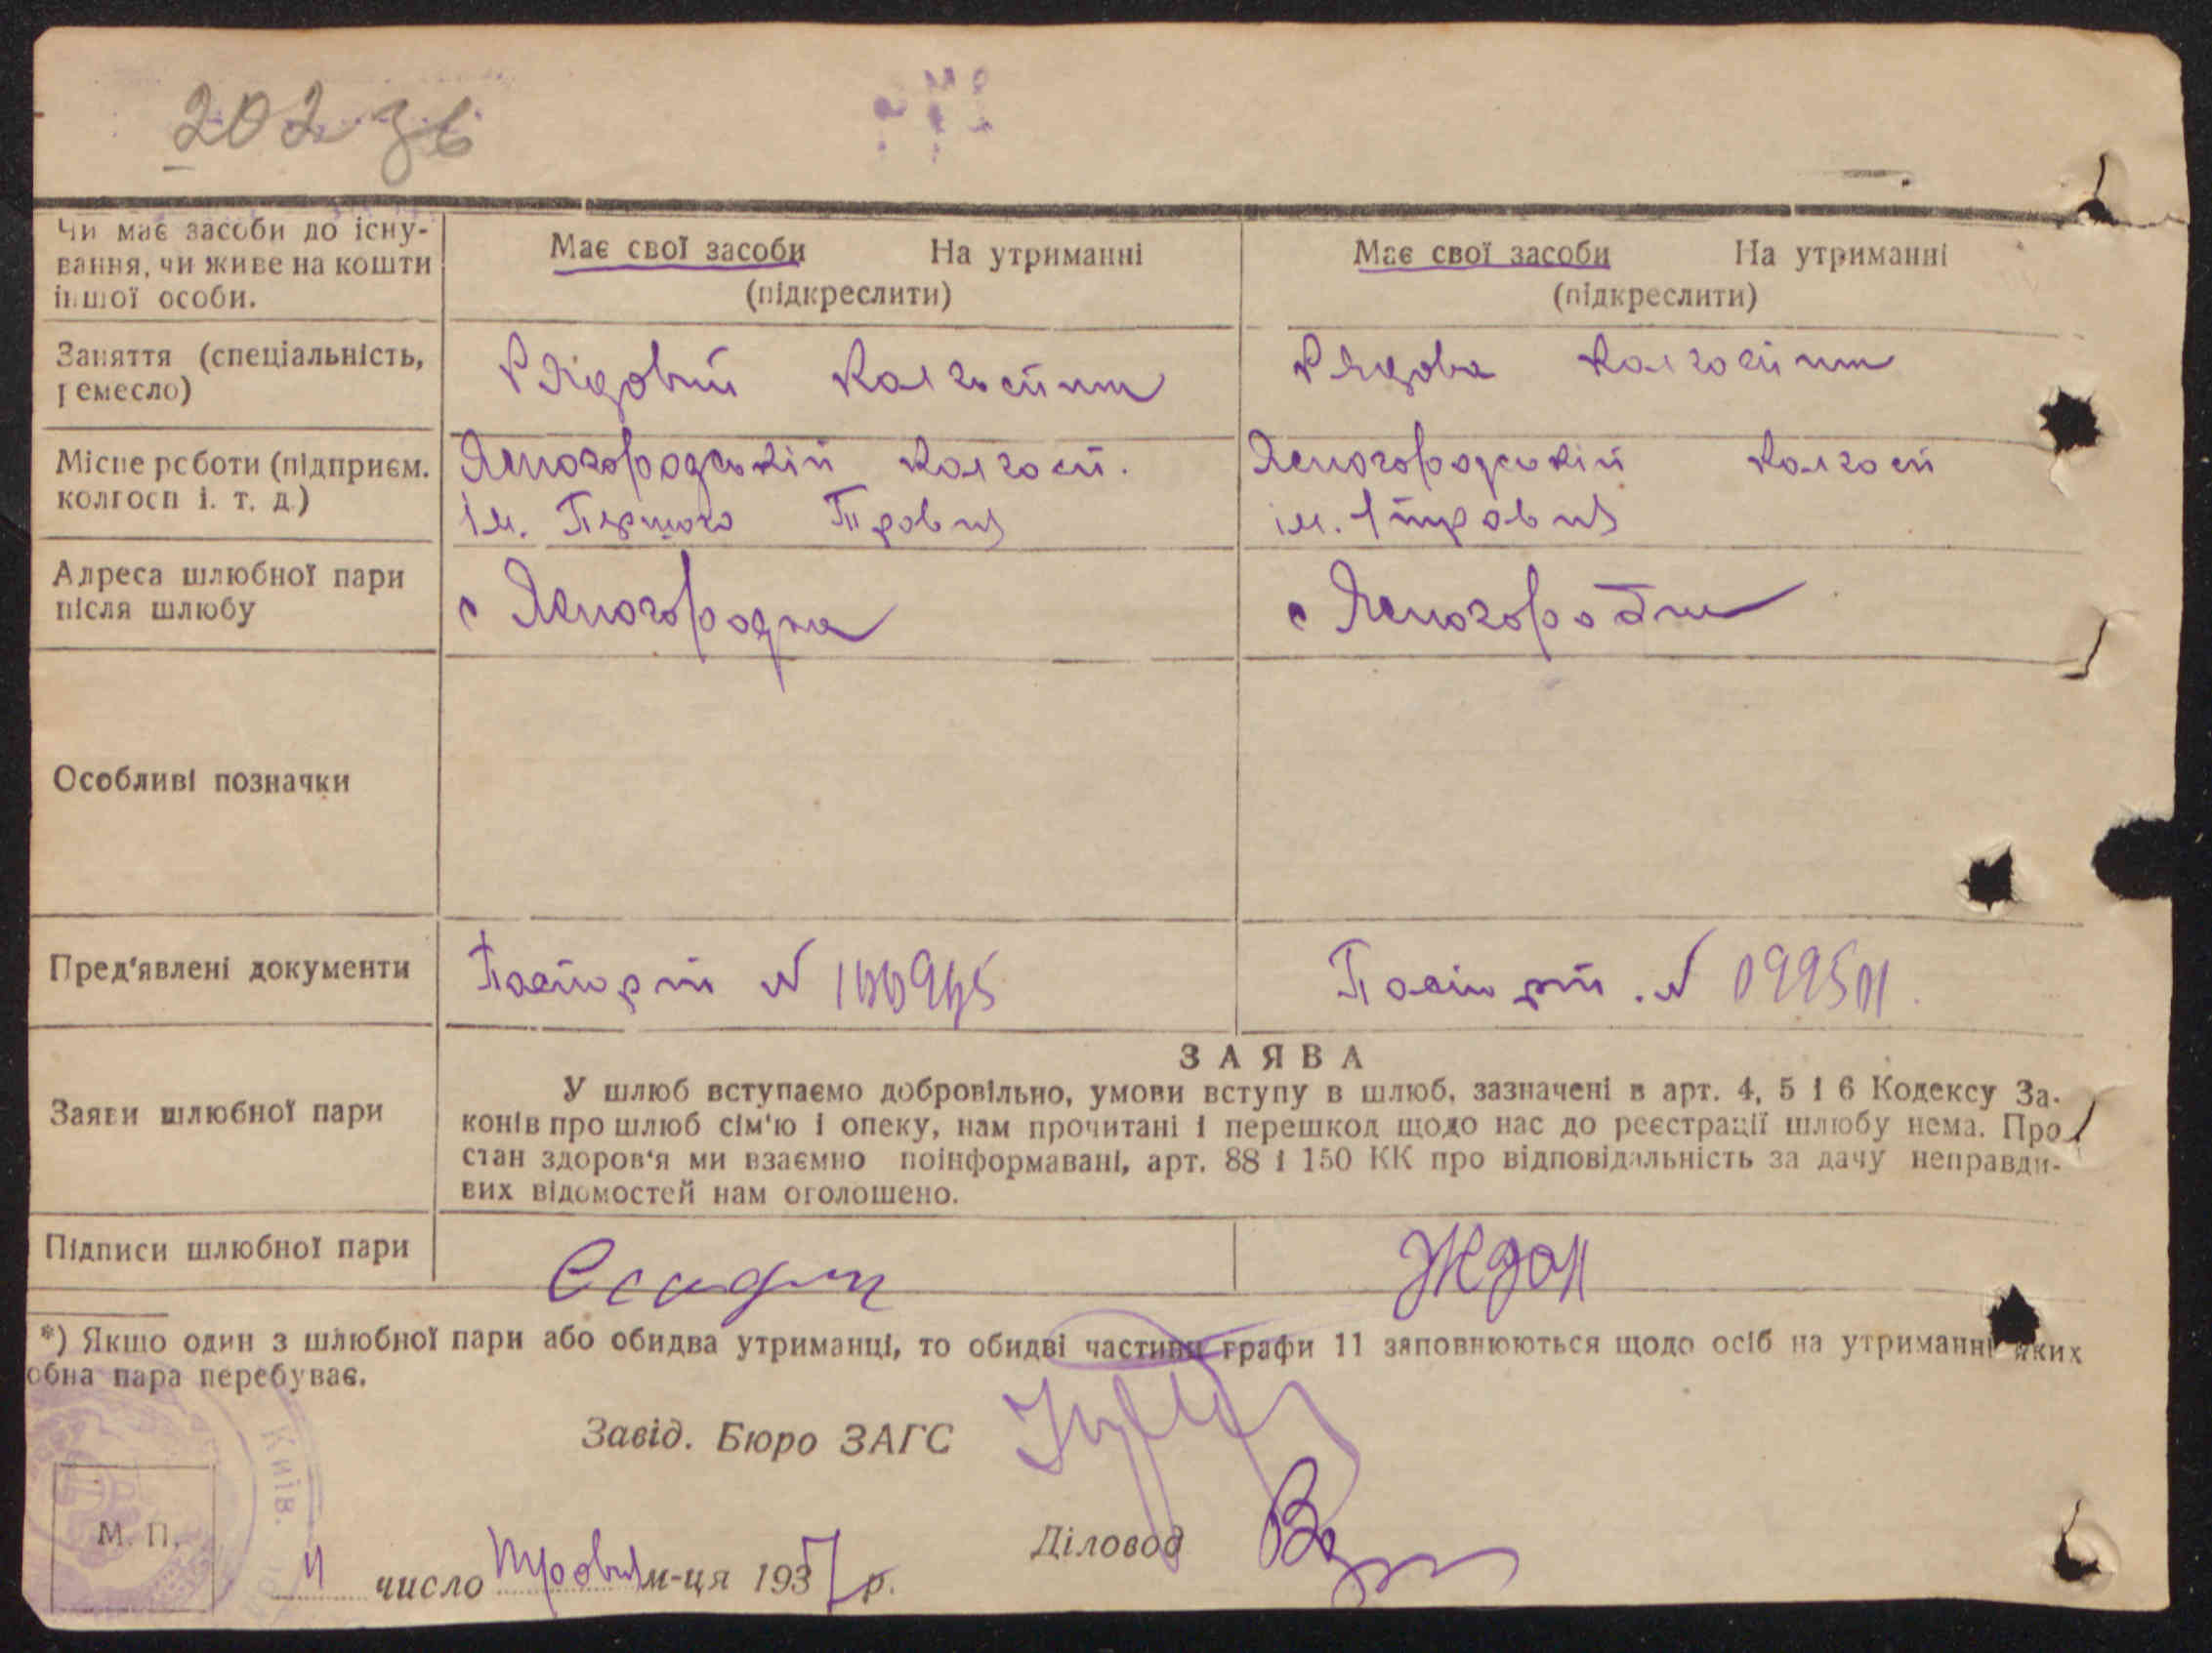 202 зв
Чи має засоби до існу-
вання, чи живе на кошти
іншої особи.
Має свої засоби На утриманні
(підкреслити)
Має свої засоби На утриманні
(підкреслити)
Заняття (спеціальність,
ремесло)
Рядовий Колгоспник
Рядова Колгоспник
Місце роботи (підприєм.
колгосп і. т. д.)
Ясногородській Колгосп.
Ім. Першого Травня
Ясногородській Колгосп
ім. 1 травня
Адреса шлюбної пари
після шлюбу
с Ясногородка
с Ясногородка
Особливі позначки
Пред'явлені документи
Паспорт №
Паспорт. № 099501
Заяви шлюбної пари
ЗАЯВА
У шлюб вступаємо добровільно, умови вступу в шлюб, зазначені в арт. 4, 5 і 6 Кодексу За-
конів про шлюб сім'ю і опеку, нам прочитані і перешкод щодо нас до реєстрації шлюбу нема. Про
стан здоров'я ми взаємно поінформавані, арт. 88 і 150 КК про відповідальність за дачу неправди-
вих відомостей нам оголошено.
Підписи шлюбної пари
Ждан
*) Якщо один з шлюбної пари або обидва утриманці, то обидві частини графи 11 заповнюються щодо осіб на утриманні яких
обна пара перебуває.
Завід. Бюро ЗАГС
Київ.
М. П.
Діловод
11 число Травня м-ця 1937 р.